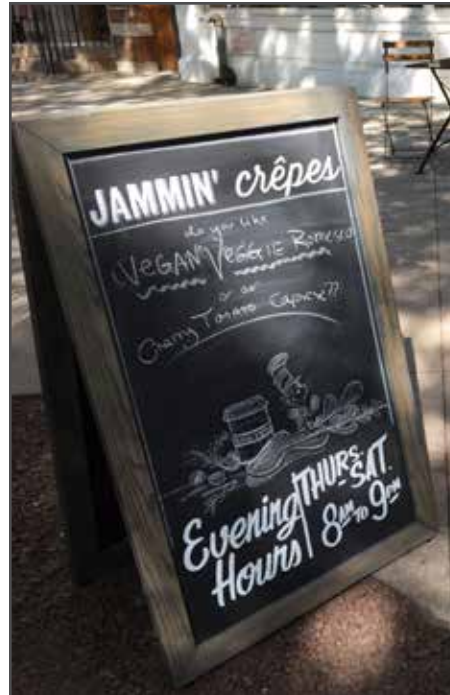 JAMMIN' crêpes
do you like
VEGAN VEGGIE Romesco
or our
Cherry Tomato Caprese??
Evening Hours
THURS-SAT.
8AM TO 9PM